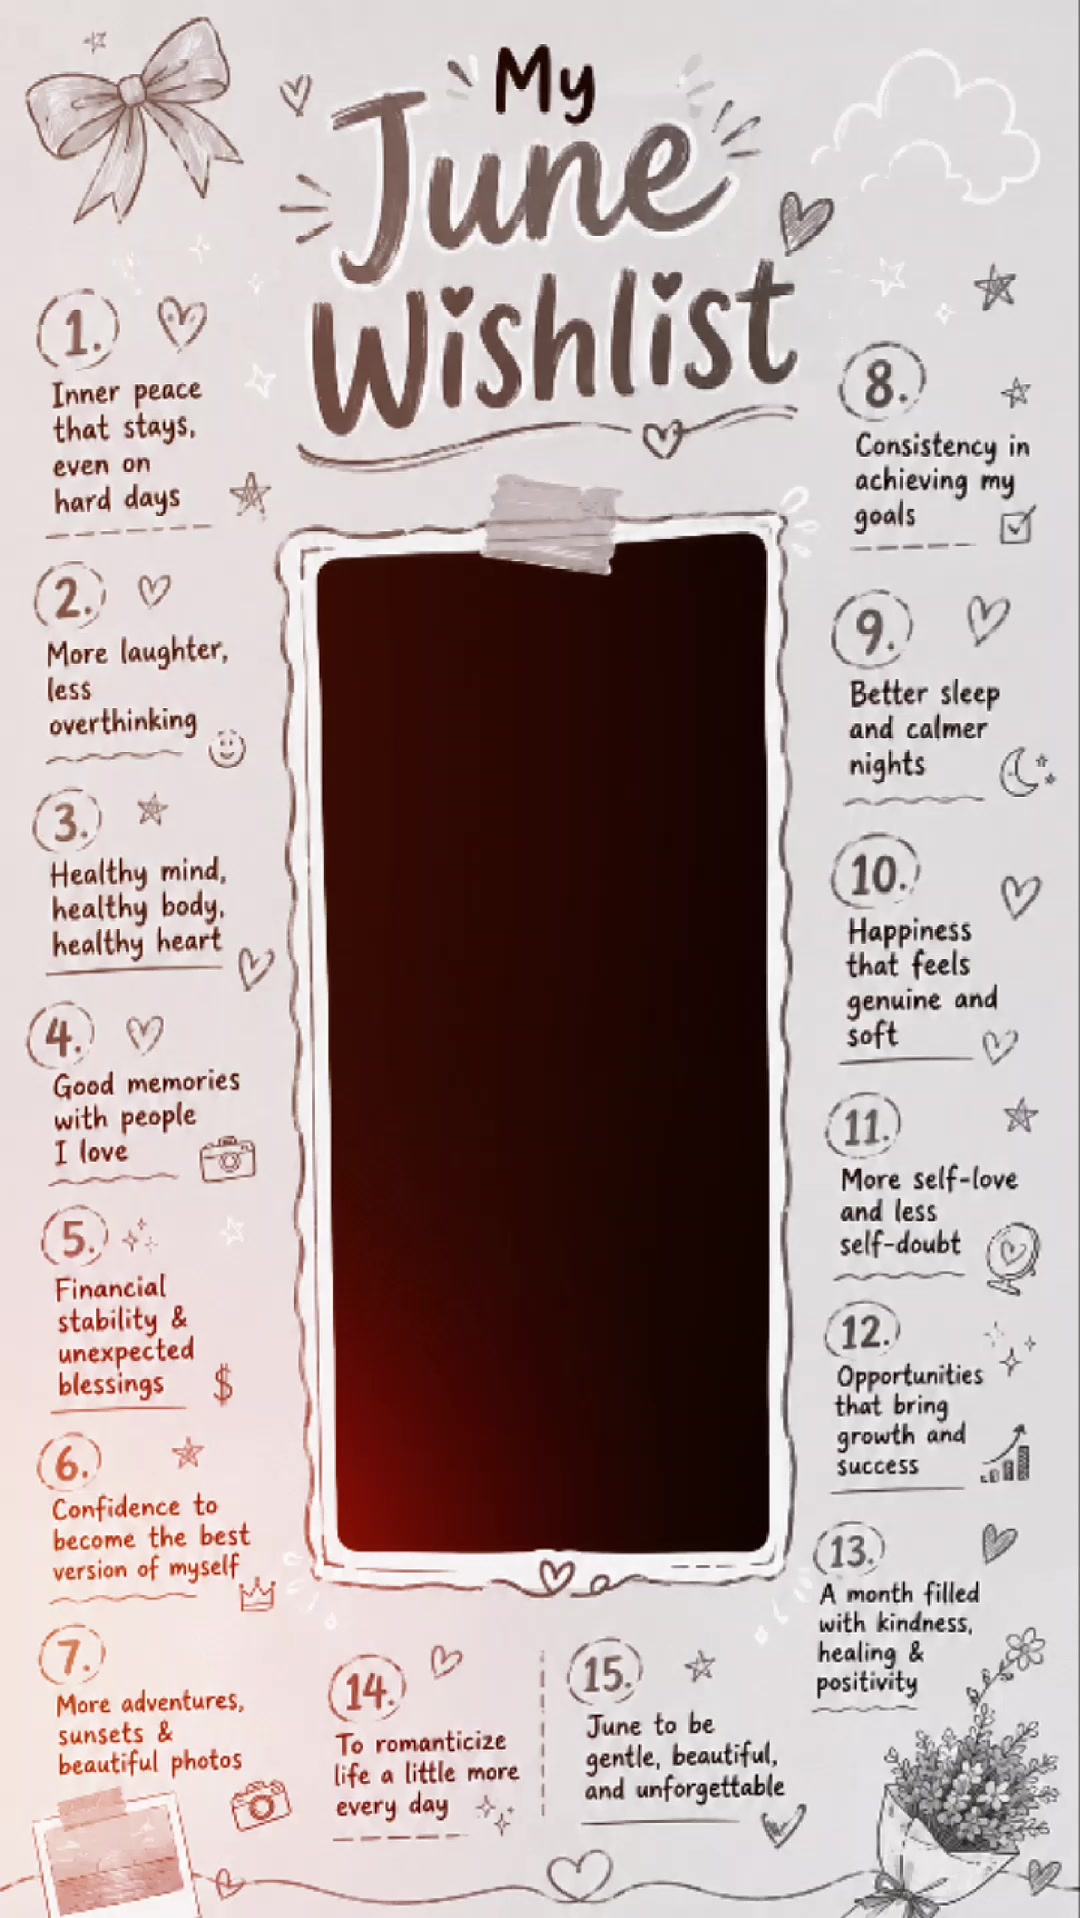 My
June
Wishlist
1.
Inner peace
that stays,
even on
hard days
2.
More laughter,
less
overthinking
3.
Healthy mind,
healthy body,
healthy heart
4.
Good memories
with people
I love
5.
Financial
stability &
unexpected
blessings
$
6.
Confidence to
become the best
version of myself
7.
More adventures,
sunsets &
beautiful photos
8.
Consistency in
achieving my
goals
9.
Better sleep
and calmer
nights
10.
Happiness
that feels
genuine and
soft
11.
More self-love
and less
self-doubt
12.
Opportunities
that bring
growth and
success
13.
A month filled
with kindness,
healing &
positivity
14.
To romanticize
life a little more
every day
15.
June to be
gentle, beautiful,
and unforgettable